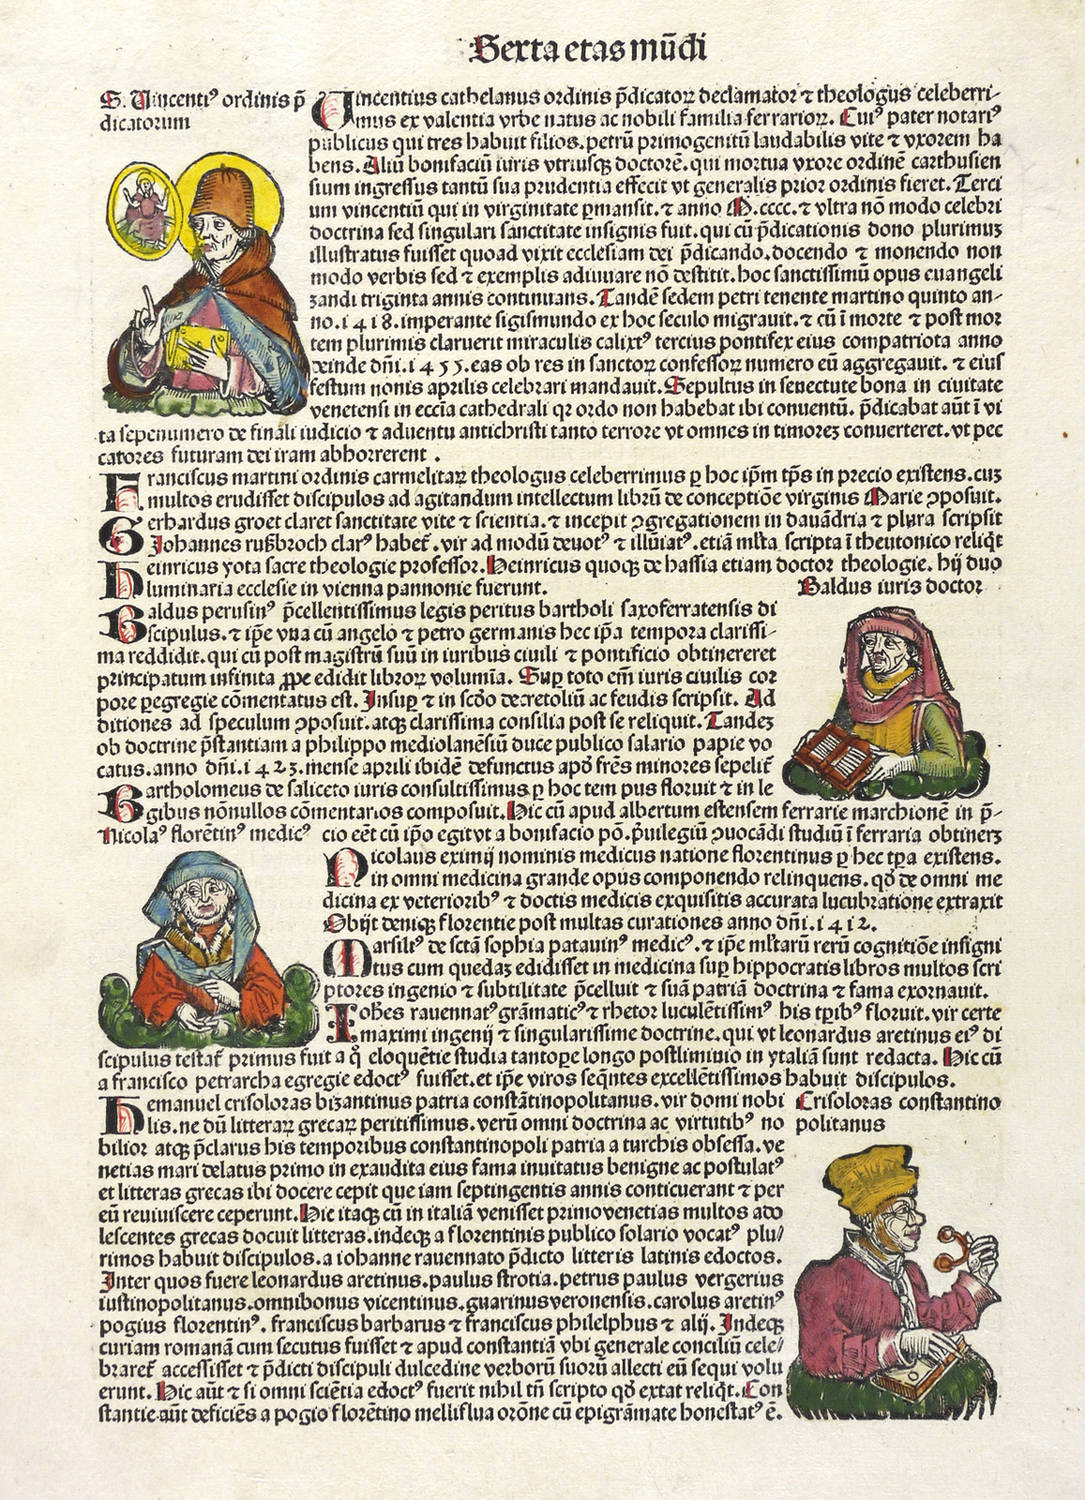 Sexta etas mūdi
S. Vincentiꝰ ordinis p̄
dicatorum
Vincentius cathelanus ordinis p̄dicatoꝝ declamator ⁊ theologus celeberri-
mus ex valentia vrbe natus ac nobili familia ferrarioꝝ. Cuiꝰ pater notariꝰ
publicus qui tres habuit filios. petrū primogenitū laudabilis vite ⁊ vxorem ha
bens. Aliū bonifaciū iuris vtriusqꝫ doctorē. qui mortua vxore ordinē carthusien
sium ingressus tantū sua prudentia effecit vt generalis prior ordinis fieret. Terci
um vincentiū qui in virginitate ꝑmansit. ⁊ anno M.cccc. ⁊ vltra nō modo celebri
doctrina sed singulari sanctitate insignis fuit. qui cū p̄dicationis dono plurimuꝫ
illustratus fuisset quoad vixit ecclesiam dei p̄dicando. docendo ⁊ monendo non
modo verbis sed ⁊ exemplis adiuuare nō destitit. hoc sanctissimū opus euangeli
zandi triginta annis continuans. Tandē sedem petri tenente martino quinto an-
no. 1418. imperante sigismundo ex hoc seculo migrauit. ⁊ cū ī morte ⁊ post mor
tem plurimis claruerit miraculis calixtꝰ tercius pontifex eius compatriota anno
deinde dn̄i. 1455. eas ob res in sanctoꝝ confessoꝝ numero eū aggregauit. ⁊ eius
festum nonis aprilis celebrari mandauit. Sepultus in senectute bona in ciuitate
venetensi in ecc̄ia cathedrali qꝛ ordo non habebat ibi conuentū. p̄dicabat aūt ī vi
ta sepenumero de finali iudicio ⁊ aduentu antichristi tanto terrore vt omnes in timoreꝫ conuerteret. vt pec
catores futuram dei iram abhorrerent .
Franciscus martini ordinis carmelitaꝝ theologus celeberrimus ꝑ hoc ip̄m tp̄s in precio existens. cuꝫ
multos erudisset discipulos ad agitandum intellectum librū de conceptiōe virginis Marie ꝯposuit.
Gerhardus groet claret sanctitate vite ⁊ scientia. ⁊ incepit ꝯgregationem in dauādria ⁊ plura scripsit
Johannes rußbroch clarꝰ habet̄. vir ad modū deuotꝰ ⁊ illūiatꝰ. etiā ml̄ta scripta ī theutonico reliq̄t
Heinricus yota sacre theologie professor. Heinricus quoqꝫ de hassia etiam doctor theologie. hij duo
luminaria ecclesie in vienna pannonie fuerunt.
Baldus iuris doctor
Baldus perusinꝰ p̄cellentissimus legis peritus bartholi saxoferratensis di
scipulus. ⁊ ip̄e vna cū angelo ⁊ petro germanis hec ip̄a tempora clarissi-
ma reddidit. qui cū post magistrū suū in iuribus ciuili ⁊ pontificio obtinereret
principatum infinita ꝓpe edidit libroꝝ volumīa. Suꝑ toto em̄ iuris ciuilis cor
pore ꝑegregie cōmentatus est. Insuꝑ ⁊ in scd̄o decretoliū ac feudis scripsit. Ad
ditiones ad speculum ꝯposuit. atqꝫ clarissima consilia post se reliquit. Tandeꝫ
ob doctrine p̄stantiam a philippo mediolanēsiū duce publico salario papie vo
catus. anno dn̄i. 1423. mense aprili ibidē defunctus apd̄ fr̄es minores sepelit̄
Bartholomeus de saliceto iuris consultissimus ꝑ hoc tem pus floruit ⁊ in le
gibus nōnullos cōmentarios composuit. Hic cū apud albertum estensem ferrarie marchionē in p̄-
cio eēt cū ip̄o egit vt a bonifacio pō. p̄uilegiū ꝯuocādi studiū ī ferraria obtinerꝫ
Nicolaꝰ florētinꝰ medicꝰ
Nicolaus eximij nominis medicus natione florentinus ꝑ hec tꝑa existens.
in omni medicina grande opus componendo relinquens. qd̄ de omni me
dicina ex veterioribꝰ ⁊ doctis medicis exquisitis accurata lucubratione extraxit
Obijt deniqꝫ florentie post multas curationes anno dn̄i. 1412.
Marsiliꝰ de sctā sophia patauinꝰ medicꝰ. ⁊ ip̄e ml̄tarū rerū cognitiōe insigni
tus cum quedaꝫ edidisset in medicina suꝑ hippocratis libros multos scri
ptores ingenio ⁊ subtilitate p̄celluit ⁊ suā patriā doctrina ⁊ fama exornauit.
Joh̄es rauennatꝰ grāmaticꝰ ⁊ rhetor luculētissimꝰ his tꝑibꝰ floruit. vir certe
maximi ingenij ⁊ singularissime doctrine. qui vt leonardus aretinus eiꝰ di
scipulus testat̄ primus fuit a q̊ eloquētie studia tantoꝑe longo postliminio in ytaliā sunt redacta. Hic cū
a francisco petrarcha egregie edoctꝰ fuisset. et ip̄e viros seq̄ntes excellētissimos habuit discipulos.
Hemanuel crisoloras bizantinus patria constātinopolitanus. vir domi nobi
lis. ne dū litteraꝝ grecaꝝ peritissimus. verū omni doctrina ac virtutibꝰ no
Crisoloras constantino
politanus
bilior atqꝫ p̄clarus his temporibus constantinopoli patria a turchis obsessa. ve
netias mari delatus primo in exaudita eius fama inuitatus benigne ac postulatꝰ
et litteras grecas ibi docere cepit que iam septingentis annis conticuerant ⁊ per
eū reuiuiscere ceperunt. Hic itaqꝫ cū in italiā venisset primo venetias multos ado
lescentes grecas docuit litteras. indeqꝫ a florentinis publico solario vocatꝰ plu/
rimos habuit discipulos. a iohanne rauennato p̄dicto litteris latinis edoctos.
Inter quos fuere leonardus aretinus. paulus strotia. petrus paulus vergerius
iustinopolitanus. omnibonus vicentinus. guarinus veronensis. carolus aretinꝰ
pogius florentinꝰ. franciscus barbarus ⁊ franciscus philelphus ⁊ alij. Indeqꝫ
curiam romanā cum secutus fuisset ⁊ apud constantiā vbi generale conciliū cele/
braret̄ accessisset ⁊ p̄dicti discipuli dulcedine verborū suorū allecti eū sequi volu
erunt. Hic aūt ⁊ si omni sciētia edoctꝰ fuerit nihil tn̄ scripto qd̄ extat reliq̄t. Con
stantie aūt deficiēs a pogio florētino melliflua orōne cū epigrāmate honestatꝰ ē.